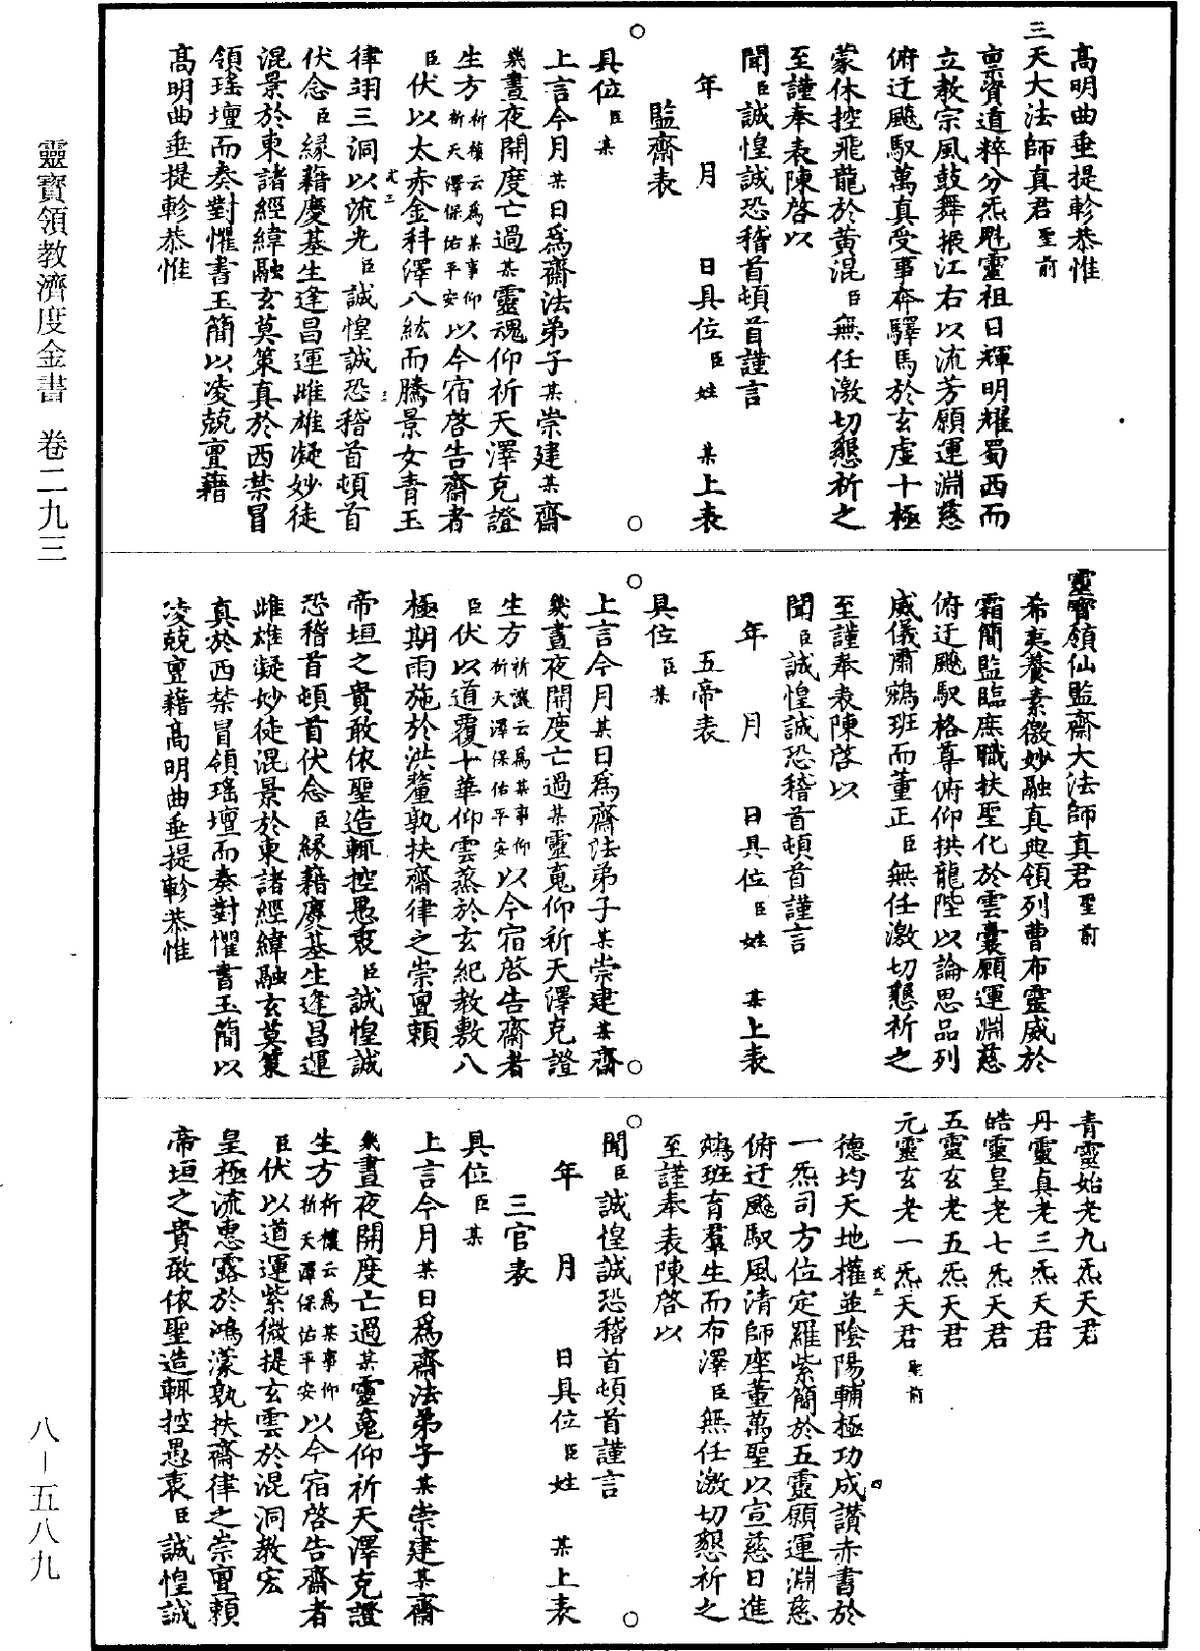 高明曲垂提軫恭惟
三天大法師真君聖前
稟資道粹分炁𩲃靈祖日輝明耀蜀西而
立教宗風鼓舞振江右以流芳願運淵慈
俯迂飈馭萬真受事奔驛馬於玄虛十極
蒙休控飛龍於黃混臣無任激切懇祈之
至謹奉表陳啓以
聞臣誠惶誠恐稽首頓首謹言
年 月 日具位臣姓 某上表
監齋表
具位臣某
上言今月某日爲齋法弟子某崇建某齋
幾晝夜開度亡過某靈魂仰祈天澤克證
生方祈禳云爲某事仰祈天澤保佑平安以今宿啓告齋者
臣伏以太赤金科澤八紘而騰景女青玉
律翊三洞以流光臣誠惶誠恐稽首頓首
伏念臣緣藉慶基生逢昌運雌雄凝妙徒
混景於東諸經緯融玄莫策真於西禁冒
領瑤壇而奏對懼書玉簡以凌兢亶藉
高明曲垂提軫恭惟
靈寶領仙監齋大法師真君聖前
希夷養素微妙融真典領列曹布靈威於
霜簡監臨庶職扶聖化於雲囊願運淵慈
俯迂飈馭格尊俯仰拱龍陛以論思品列
威儀肅鵷班而董正臣無任激切懇祈之
至謹奉表陳啓以
聞臣誠惶誠恐稽首頓首謹言
年 月 日具位臣姓 某上表
五帝表
具位臣某
上言今月某日爲齋法弟子某崇建某齋
幾晝夜開度亡過某靈䰟仰祈天澤克證
生方祈禳云爲某事仰祈天澤保佑平安以今宿啓告齋者
臣伏以道覆十華仰雲蒸於玄紀教敷八
極期雨施於洪釐孰扶齋律之崇亶賴
帝垣之貴敢依聖造輒控愚衷臣誠惶誠
恐稽首頓首伏念臣緣藉慶基生逢昌運
雌雄凝妙徒混景於東諸經緯融玄莫策
真於西禁冒領瑤壇而奏對懼書玉簡以
凌兢亶藉高明曲垂提軫恭惟
青靈始老九炁天君
丹靈真老三炁天君
皓靈皇老七炁天君
五靈玄老五炁天君
元靈玄老一炁天君聖前
德均天地權並陰陽輔極功成讚赤書於
一炁司方位定羅紫簡於五靈願運淵慈
俯迂飈馭風清師座董萬聖以宣慈日進
鵷班育羣生而布澤臣無任激切懇祈之
至謹奉表陳啓以
聞臣誠惶誠恐稽首頓首謹言
年 月 日具位臣姓 某上表
三官表
具位臣某
上言今月某日爲齋法弟子某崇建某齋
幾晝夜開度亡過某靈䰟仰祈天澤克證
生方祈禳云爲某事仰祈天澤保佑平安以今宿啓告齋者
臣伏以道運紫微提玄雲於混洞教宏
皇極流惠露於鴻濛孰扶齋律之崇亶賴
帝垣之貴敢依聖造輒控愚衷臣誠惶誠
靈寶領教濟度金書 卷二九三
八－五八九